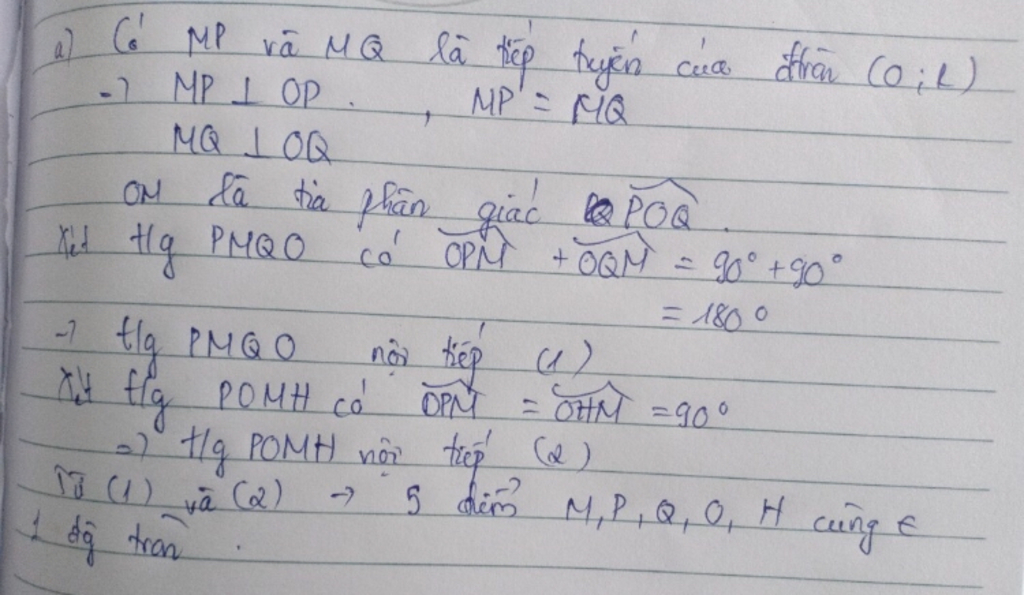 a) Có MP và MQ là tiếp tuyến của đtròn (O; R)
→ MP ⊥ OP. , MP = MQ
MQ ⊥ OQ
OM là tia phân giác POQ.
Xét t/g PMQO có OPM + OQM = 90° + 90°
= 180°
→ t/g PMQO nội tiếp (1)
Xét t/g POMH có OPM = OHM = 90°
=> t/g POMH nội tiếp (2)
Từ (1) và (2) → 5 điểm M, P, Q, O, H cùng ∈
1 đg tròn.